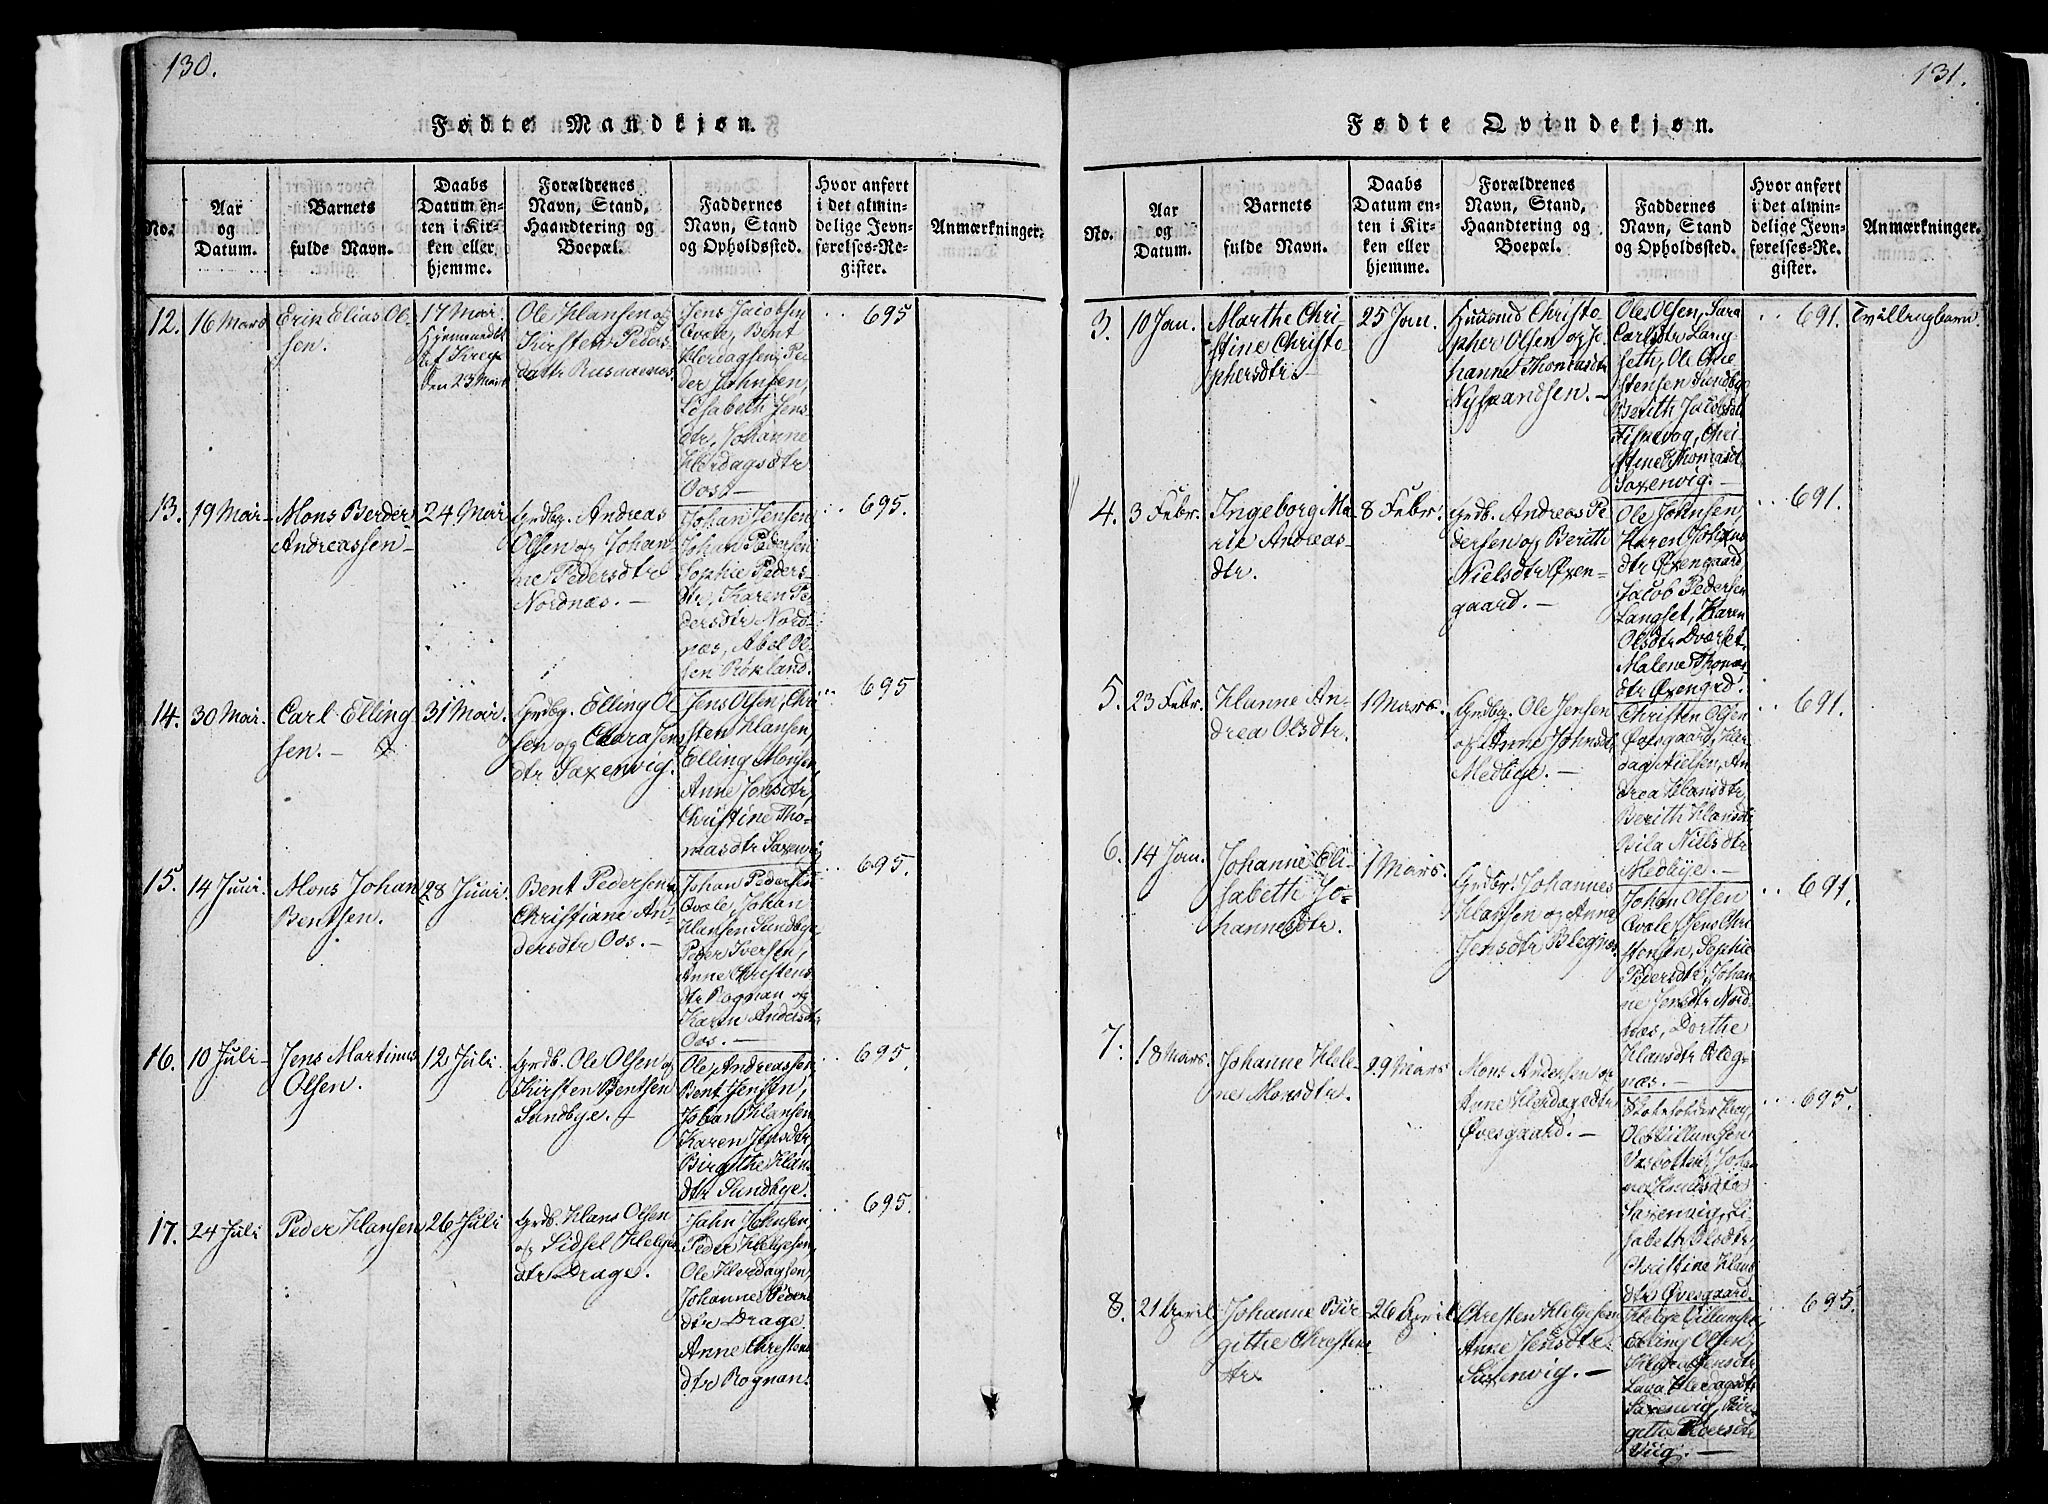 130.
Fødte Mandkjøn.
No.
Aar
og
Datum.
Barnets
fulde Navn.
Daabs
Datum en-
ten i Kir-
ken eller
hjemme.
Forældrenes
Navn, Stand,
Haandtering og
Boepæl.
Faddernes
Navn, Stand
og Opholdssted.
Hvor anført
i det almin-
delige Jevn-
førelses-Re-
gister.
Anmærkninger.
12.
16 Marts
Erik Elias Ol-
sen.
17 Mai
Hjemmedøbt
den 25 Mart
Ole Hansen og
Kirsten Peders-
datr
Jens Jacobsen
Qvale, Bent
Herdagsen, Pe-
der Johnsen,
Lisabeth Jens
dtr, Johanne
Herdagsdtr
Oost
695
13.
19 Mai
Mons Berder
Andreassen
24 Mai
Grdbg. Andreas
Olsen og Johan-
ne Pedersdtr
Nordnæs.
Johan Jensen,
Johan Pedersen
Sophie Peders-
dtr, Karen Pe-
dersdtr Nord-
næs, Abel Ol-
sen Røkland.
695.
14.
30 Mai.
Carl Elling
sen.
31 Mai.
Grdbg. Elling O
sen og Clara Jens
dtr Saxenvig.
Jens Olsen, Chri
sten Hansen,
Elling Monsen
Anne Johsdtr,
Christine Tho-
masdtr Saxenvig
695
15.
14 Juni.
Mons Johan
Bentsen.
28 Juni.
Bent Pedersen og
Christiane An-
dersdtr Oos.
Johan Pedersen
Qvale, Johan
Hansen Sundbye,
Peder Iversen,
Anne Christens
dtr Rognan og
Karen Andersdtr
Oos.
695.
16.
10 Juli
Jens Martinus
Olsen.
12 Juli.
Grdb. Ole Olsen og
Kirsten Bentsen
Sundbye.
Ole Andreassen
Bent Jensen,
Johan Hansen
Karen Jensdtr,
Birgithe Hans
dtr Sundbye.
695.
17.
24 Juli
Peder Hansen
26 Juli
Grdb. Hans Olsen
og Sidsel Helges
dtr Drage.
John Johnsen,
Peder Helgesen,
Ole Herdagsen,
Johanne Peders
dtr Drage.
Anne Christens
dtr Rognan.
695.
131.
Fødte Qvindekjøn.
No.
Aar
og
Datum.
Barnets
fulde Navn.
Daabs
Datum en-
ten i Kir-
ken eller
hjemme.
Forældrenes
Navn, Stand,
Haandtering og
Boepæl.
Faddernes
Navn, Stand
og Opholdssted.
Hvor anført
i det almin-
delige Jevn-
førelses-Re-
gister.
Anmærkninger.
3.
10 Jan.
Marthe Chri-
stine Christo
phersdtr.
25 Jan.
Huusmd Christo
pher Olsen og Jo
hanne Thomasdtr
Ole Olsen, Sara
Carlsdtr Lang-
seth, Ole Chri
stensen Sundby
Berith Jacobsdtr
Fiskvog, Chri-
stine Thomasdt
Saxenvig.
691.
Tvillingbarn
4.
3 Febr.
Ingeborg Ma-
rie Andreas-
dtr.
8 Febr.
Grdb. Andreas Pe
dersen og Berith
Nielsdtr Øxen-
gaard.
Ole Johnsen,
Karen Johans
dtr Øxengaard
Jacob Pedersen
Langset, Karen
Olsdtr Dværset,
Malene Thomas
dtr Øxengrd.
691.
5.
23 Febr.
Hanne An-
drea Olsdtr.
1 Mars.
Grdbg. Ole Jensen
og Anne Johnsdt
Medbye.
Christen Olsen
Øvesgaard, Her
dag Nielsen, An
drea Hansdtr,
Berith Hansdtr,
Bila Nielsdtr
Medbye.
691.
6.
14 Jan.
Johanne Eli-
sabeth Jo-
hannesdtr.
1 Mars.
Grdbr. Johannes
Hansen og Anne
Jensdtr Blegnæs
Johan Olsen
Qvale, Jens Chri
stensen, Sophie
Pedersdtr, Johan
ne Jensdtr Nord-
næs, Dorthe
Hansdtr Bleg-
næs.
691.
7.
18 Mars.
Johanne Hele-
ne Monsdtr.
29 Mars
Mons Andersen og
Anne Herdagsdtr
Øvesgaard.
Skoleholder
Ole Villumsen
Johan
ne
Saxenvig, Li-
sabeth Olsdtr,
Christine Hans
dtr Øvesgaard.
695.
8.
21 April
Johanne Bir
githe Christens
dtr
26 April
Christen Helgesen
Anne Jensdtr
Saxenvig.
Helge Villumsen,
Elling Olsen,
Lava Herdagsdtr
Saxenvig, Bir-
githe Pedersdtr
Viig.
695.